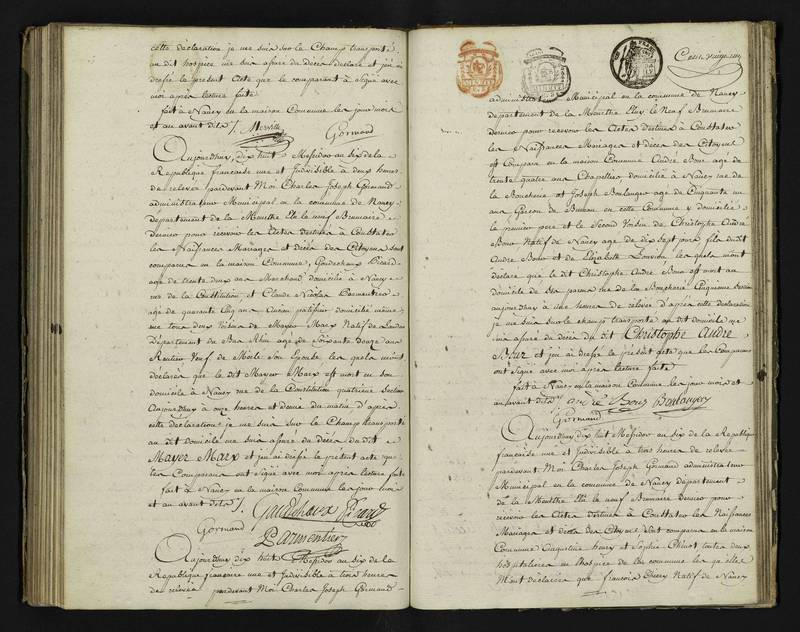 cette déclaration je me suis sur le Champ transporté
au dit hospice me suis assuré du décès déclaré et j'ai
dressé le présent Acte que le comparant à signé avec
moi après lecture faite
fait à Nancy en la maison Commune les jour mois
et an avant dits /. Merville Gormand
Aujourdhuy, dix huit Messidor au six de la
Republique francaise une et Indivisible à deux heures
de relevée pardevant Moi Charles Joseph Gormand
administrateur Municipal en la commune de Nancy
département de la Meurthe Elu le neuf Brumaire
dernier pour recevoir les Actes destinés à Constater
les Naissances Mariages et décès des Citoyens sont
comparus en la maison Commune, Goudechaux Picard
age de trente deux ans Marchand domicilié à Nancy
rue de la Constitution et Claude Nicolas Parmentier
age de quarante cinq ans domicilié même
rue tous deux Voisins de Mayer Marx Natif de Landau
Département du Bas Rhin agé de Soixante douze ans
Rentier Veuf de son Epouse les quels m'ont
déclarés que le dit Mayer Marx est mort en son
domicile à Nancy rue de la Constitution quatrieme Section
Aujourdhuy à onze heures et demie du matin d'après
cette déclaration je me suis sur le Champ transporté
au dit domicile me suis assuré du Décès du dit
Mayer Marx et j'en ai dressé le présent acte que
les Comparans ont signé avec moi après lecture faite
fait à Nancy en la maison Commune les jour mois
et an avant dits /. Gaudchaux Picard
Gormand Parmentier
Aujourdhuy dix huit Messidor au six de la
Republique francaise une et Indivisible à trois heures
de relevée pardevant Moi Charles Joseph Gormand
administrateur Municipal en la commune de Nancy
département de la Meurthe Elu le Neuf Brumaire
Dernier pour recevoir les Actes destinés à Constater
les Naissances Mariages et décès des Citoyens
est Comparu en la maison Commune André Bour age de
trente quatre ans Chapellier domicilié à Nancy rue de
la Boucherie et Joseph Boulanger agé de Cinquante un
ans Garçon de Bureau en cette Commune y domicilié
le premier pere et le Second Voisin de Christophe André
Bour Natif de Nancy age de dix sept jours fils du dit
André Bour et de Elizabeth les quels m'ont
déclaré que le dit Christophe André Bour est mort au
domicile de ses parens rue de la Boucherie Cinquieme Section
aujourdhuy à une heure de relevée d'après cette déclaration
je me suis sur le champ transporté au dit domicile me
suis assuré du décès du dit Christophe André
Bour et j'en ai dressé le présent acte que les Comparans
ont signé avec moi après lecture faite
fait à Nancy en la maison Commune les jour mois et
an avant dits André Bour Boulanger
Gormand
Aujourdhuy dix huit Messidor au six de la Republique
francaise une et Indivisible à trois heures de relevée
pardevant Moi Charles Joseph Gormand administrateur
Municipal en la commune de Nancy département
de la Meurthe Elu le neuf Brumaire Dernier pour
recevoir les Actes destinés à Constater les Naissances
Mariages et décès des Citoyens sont comparues en la maison
Commune Augustine henry et Sophie toutes deux
hospitalieres en l'hospice de les quelles
M'ont déclarées que francois Natif de Nancy